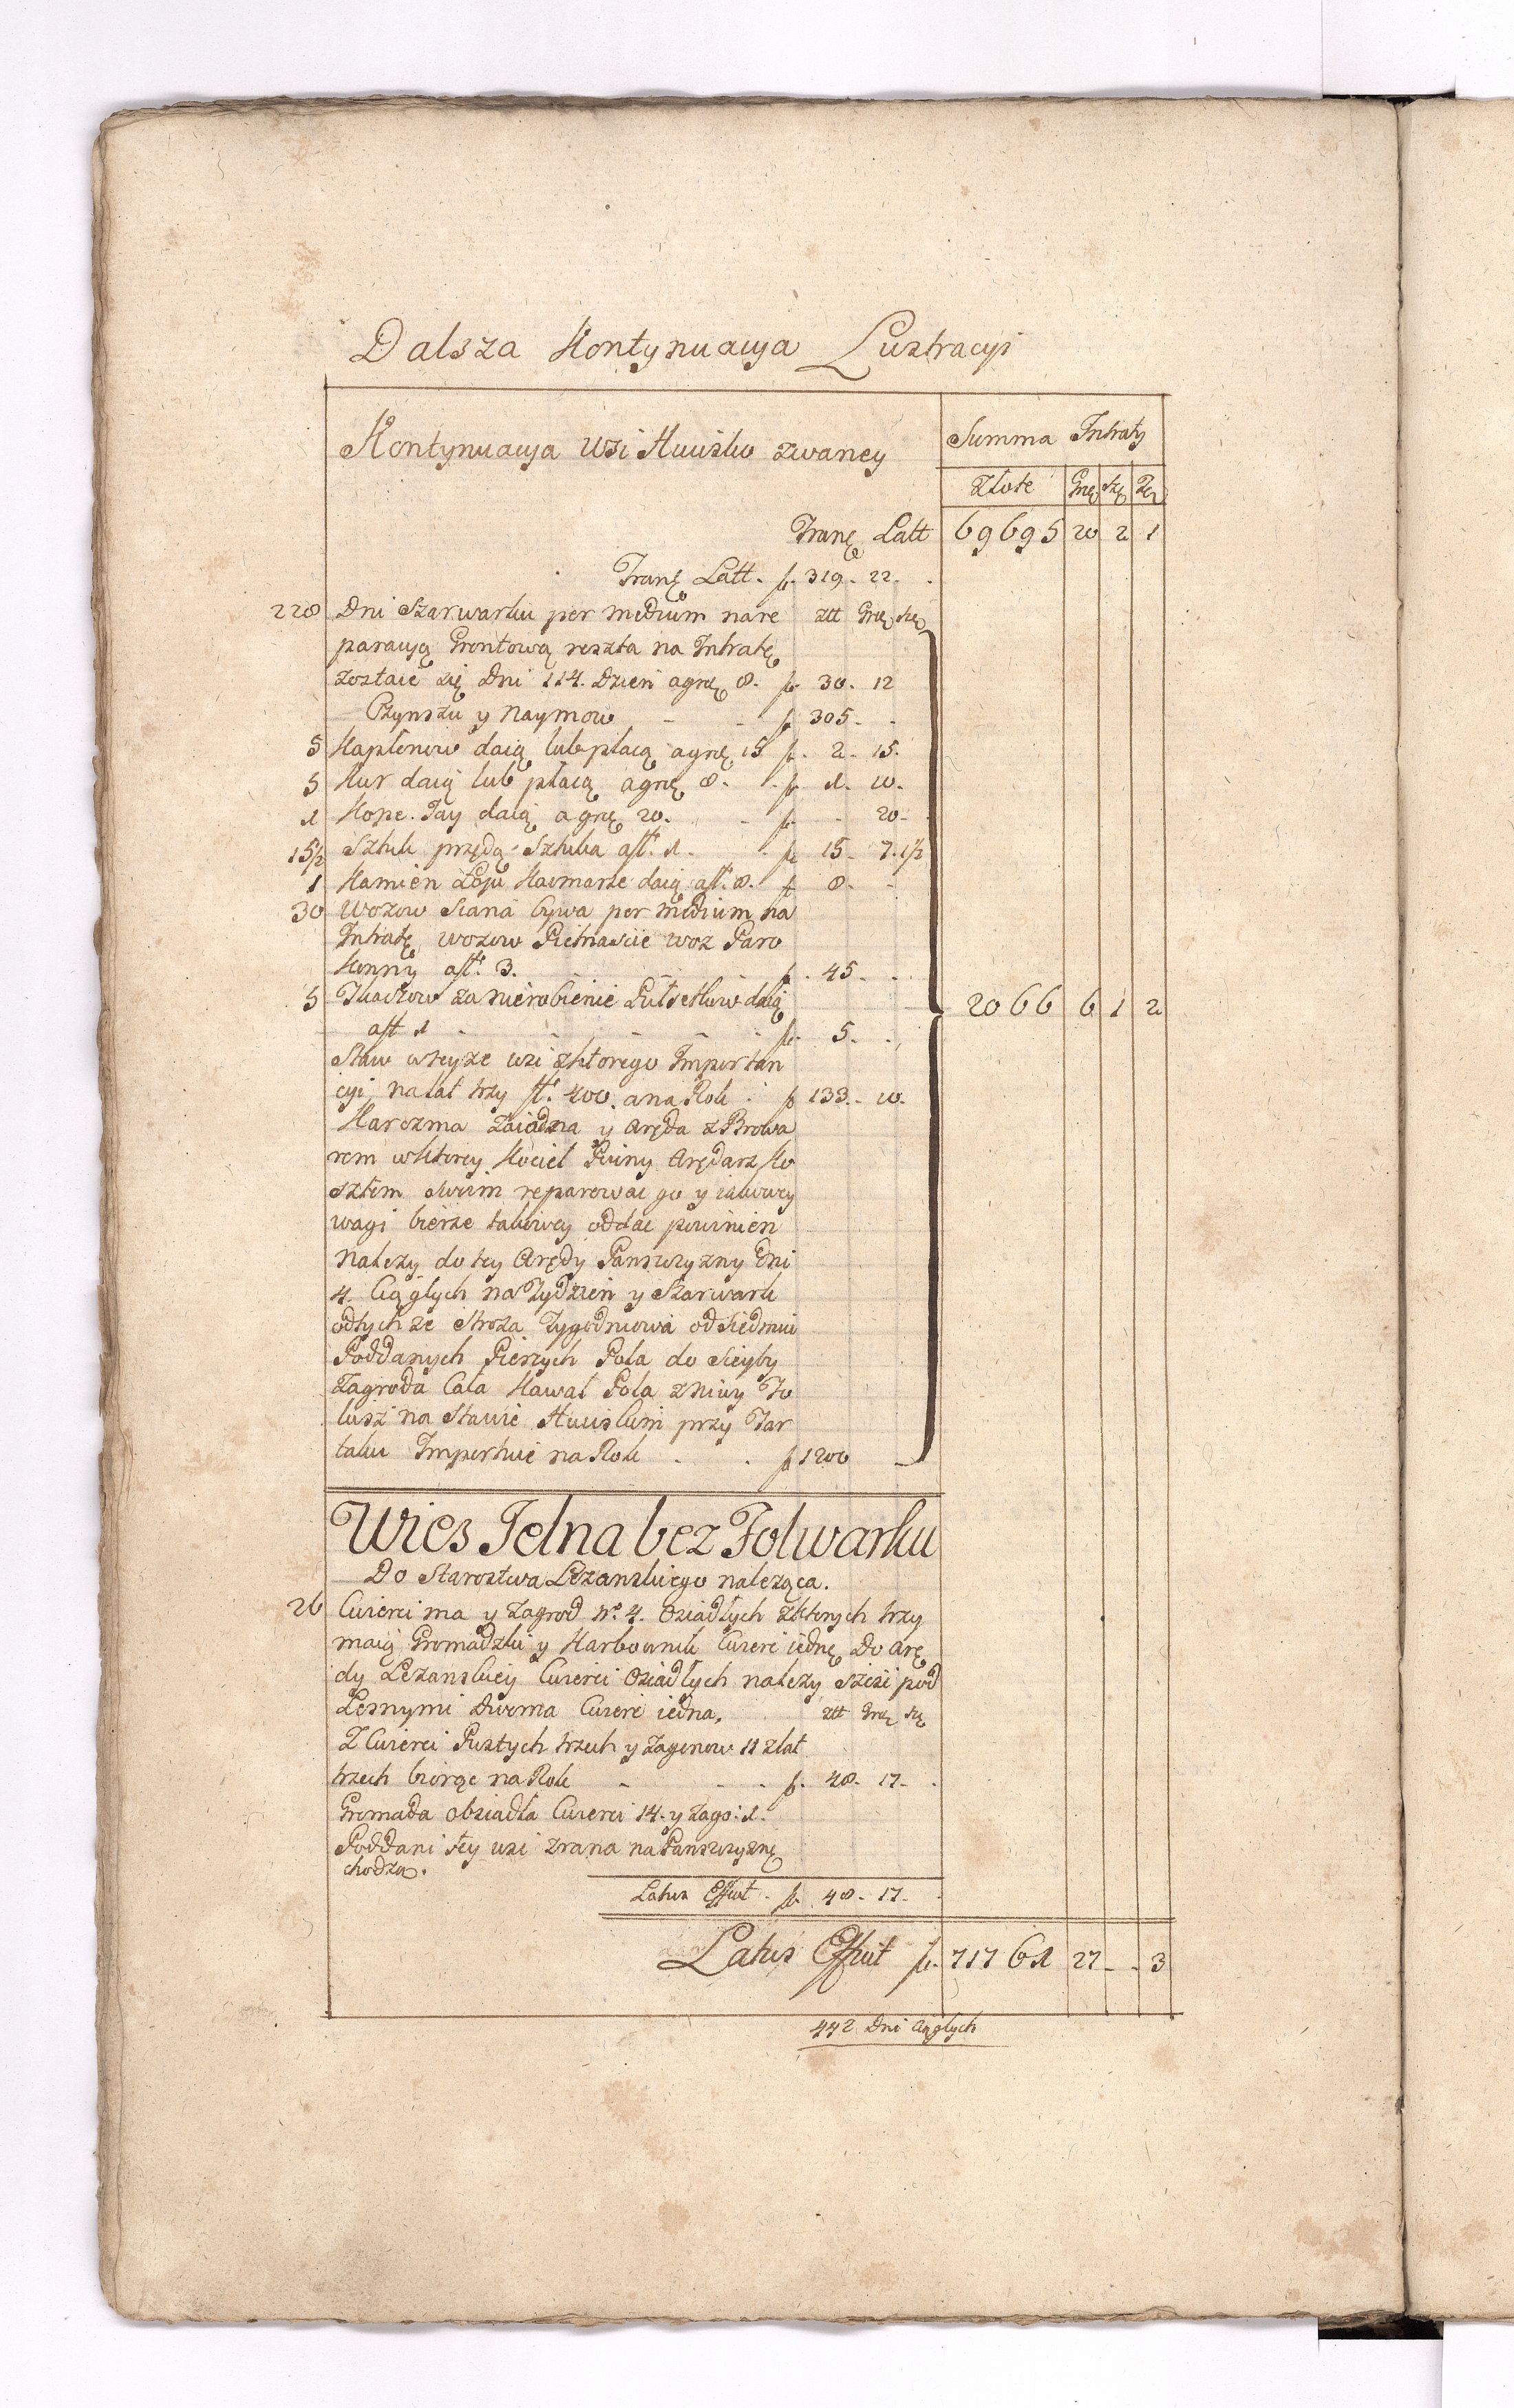 Dalsza Kontynuacya Lustracyi
Kontynuacya Wsi Hucisko zwaney
Summa Intraty
Złote Grę Szę Zę
Tranę Latt 69695 20 2 1
Tranę Latt. f. 319. 22.
228 Dni Szarwarku per medium na re złł Grę Szę
paracyą Grontową reszta na Intratę
zostaie się Dni 114. Dzien a grę 8. f. 30. 12
Czynszu y Naymow - - f 305. -
5 Kapłonow daią lub płacą a grę 15 f. 2. 15.
5 Kur daią lub płacą a grę 8. f. 1. 10.
1 Kope Jay daią a grę 20. - f. - 20.
15½ Sztuk przędą Sztuka a ff. 1. f. 15. 7. 1½
1 Kamien Łoju Kaczmarze daią a ff. 8. f. 8. -
30 Wozow Siana bywa per medium na
Intratę wozow Pietnascie woz Paro
Konny a ff. 3. f. 45. -
5 Tkaczow za nierobienie Pułsetkow daią
a ff 1 - - - f. 5. -
Staw w teyze wsi z ktorego Importan
cyi na lat trzy ff. 400. a na Rok f 133. 10.
2066 6 1 2
Karczma Zaiadna y Aręda z Browa
rem w ktorey Kocieł Pinny Arędarz Ko
sztem swoim reparować go y iakowey
wagi bierze takowey oddac powinien
Nalezy do tey Arędy Panszczyzny Dni
4. Ciągłych na Tydzien y Szarwark
od tych ze Stroza Tygodniowa od Siedmiu
Poddanych Pieszych Pola do Sieyby
Zagroda Cała Kawał Pola z niwy To
lusz na Stawie Huciskim przy Tar
taku Importuie na Rok - . f 1200
Wies Jelna bez Folwarku
Do Starostwa Lezanskiego naleząca.
26 Cwierci ma y Zagrod No. 4. Osiadłych z ktorych trzy
maią Gromadzki y Karbownik Cwierc iednę Do Arę
dy Lezanskiey Cwierci Osiadłych nalezy szesi pod
Lesnymi dwoma Cwierc iedna. złł Grę Szę
Z Cwierci Pustych trzech y Zagonow 11 z lat
trzech biorąc na Rok - - . f. 48. 17.
Gromada obsiadła Cwierci 14. y Zago: 1.
Poddani tey wsi z rana na Panszczyznę
chodzą.
Latus Efficit . f. 48. 17.
Latus Efficit f. 71761 27 - 3
442 Dni Ciągłych